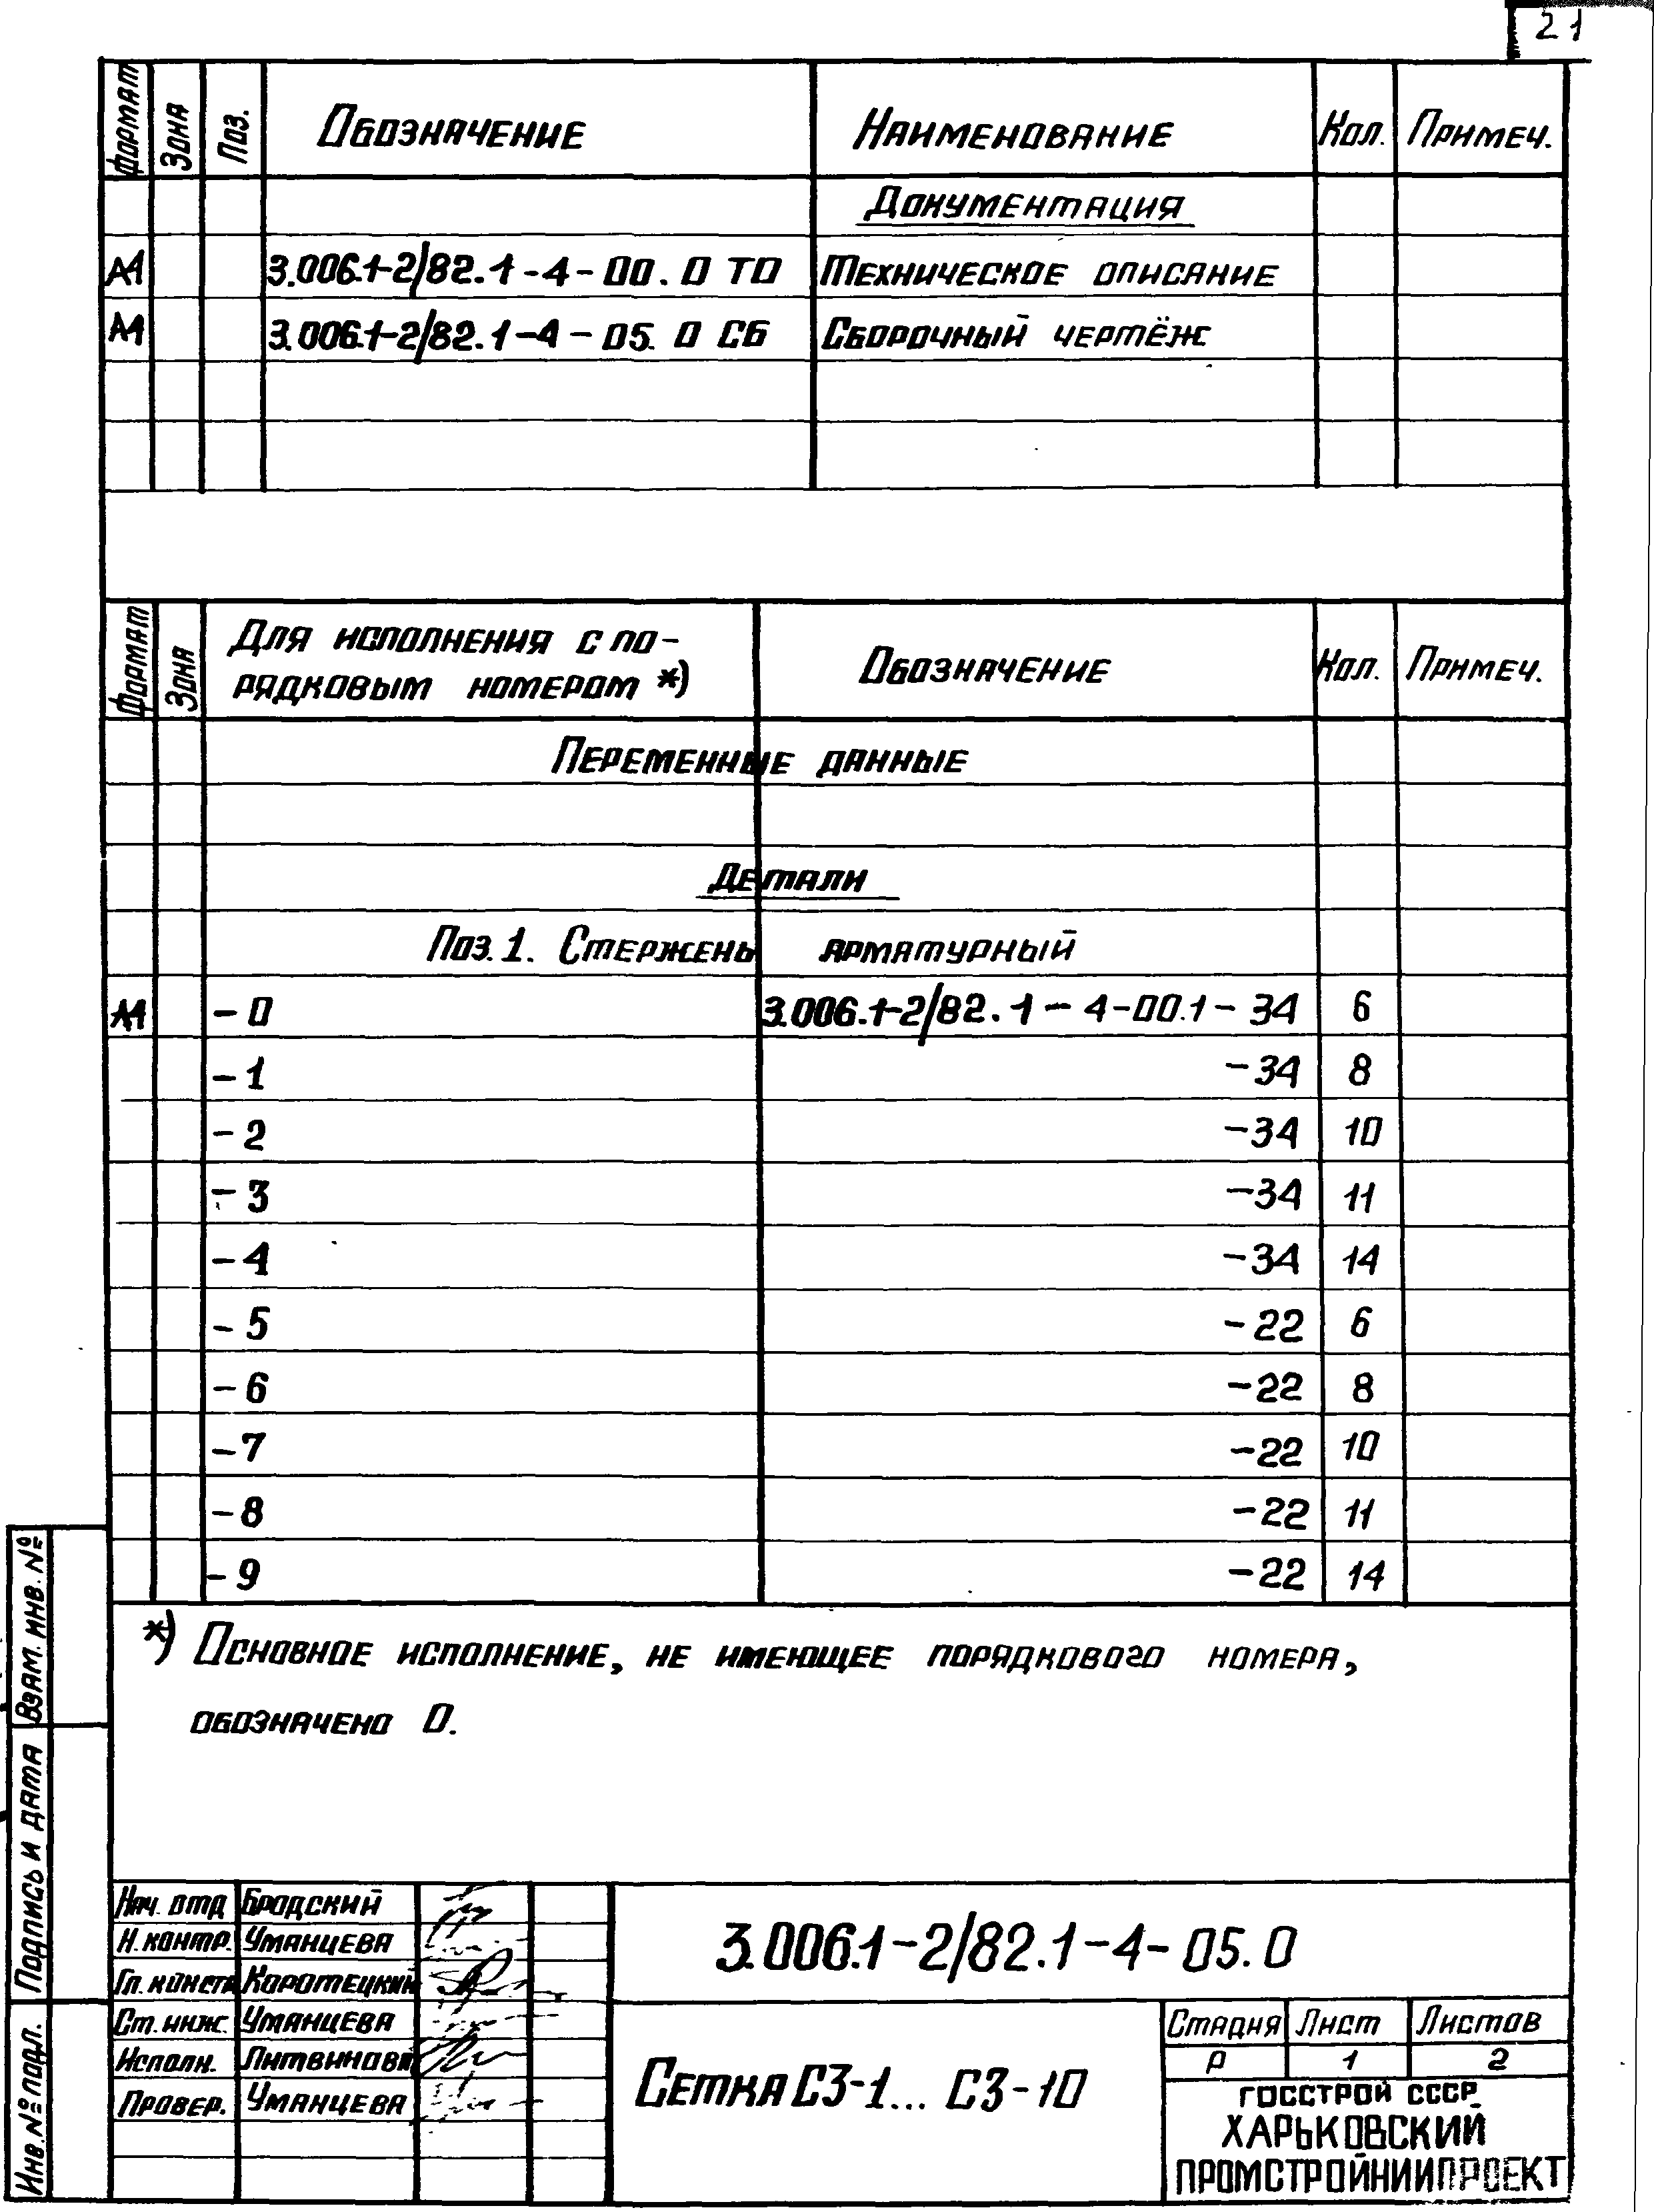 21
Формат Зона Поз. Обозначение Наименование Кол. Примеч.
Документация
А4 3.006.1-2/82.1-4-00.0 ТО Техническое описание
А4 3.006.1-2/82.1-4-05.0 СБ Сборочный чертёж
Формат Зона Для исполнения с по- Обозначение Кол. Примеч.
рядковым номером *)
Переменные данные
Детали
Поз. 1. Стержень арматурный
А4 -0 3.006.1-2/82.1-4-00.1-34 6
-1 -34 8
-2 -34 10
-3 -34 11
-4 -34 14
-5 -22 6
-6 -22 8
-7 -22 10
-8 -22 11
-9 -22 14
*) Основное исполнение, не имеющее порядкового номера,
обозначено 0.
Взам. инв. №
Подпись и дата
Инв. № подл.
Нач. отд Бродский
Н. контр. Уманцева
Гл. констр Коротецкий
Ст. инж. Уманцева
Исполн. Литвинова
Провер. Уманцева
3.006.1-2/82.1-4-05.0
Сетка С3-1... С3-10
Стадия Лист Листов
Р 1 2
ГОССТРОЙ СССР
ХАРЬКОВСКИЙ
ПРОМСТРОЙНИИПРОЕКТ